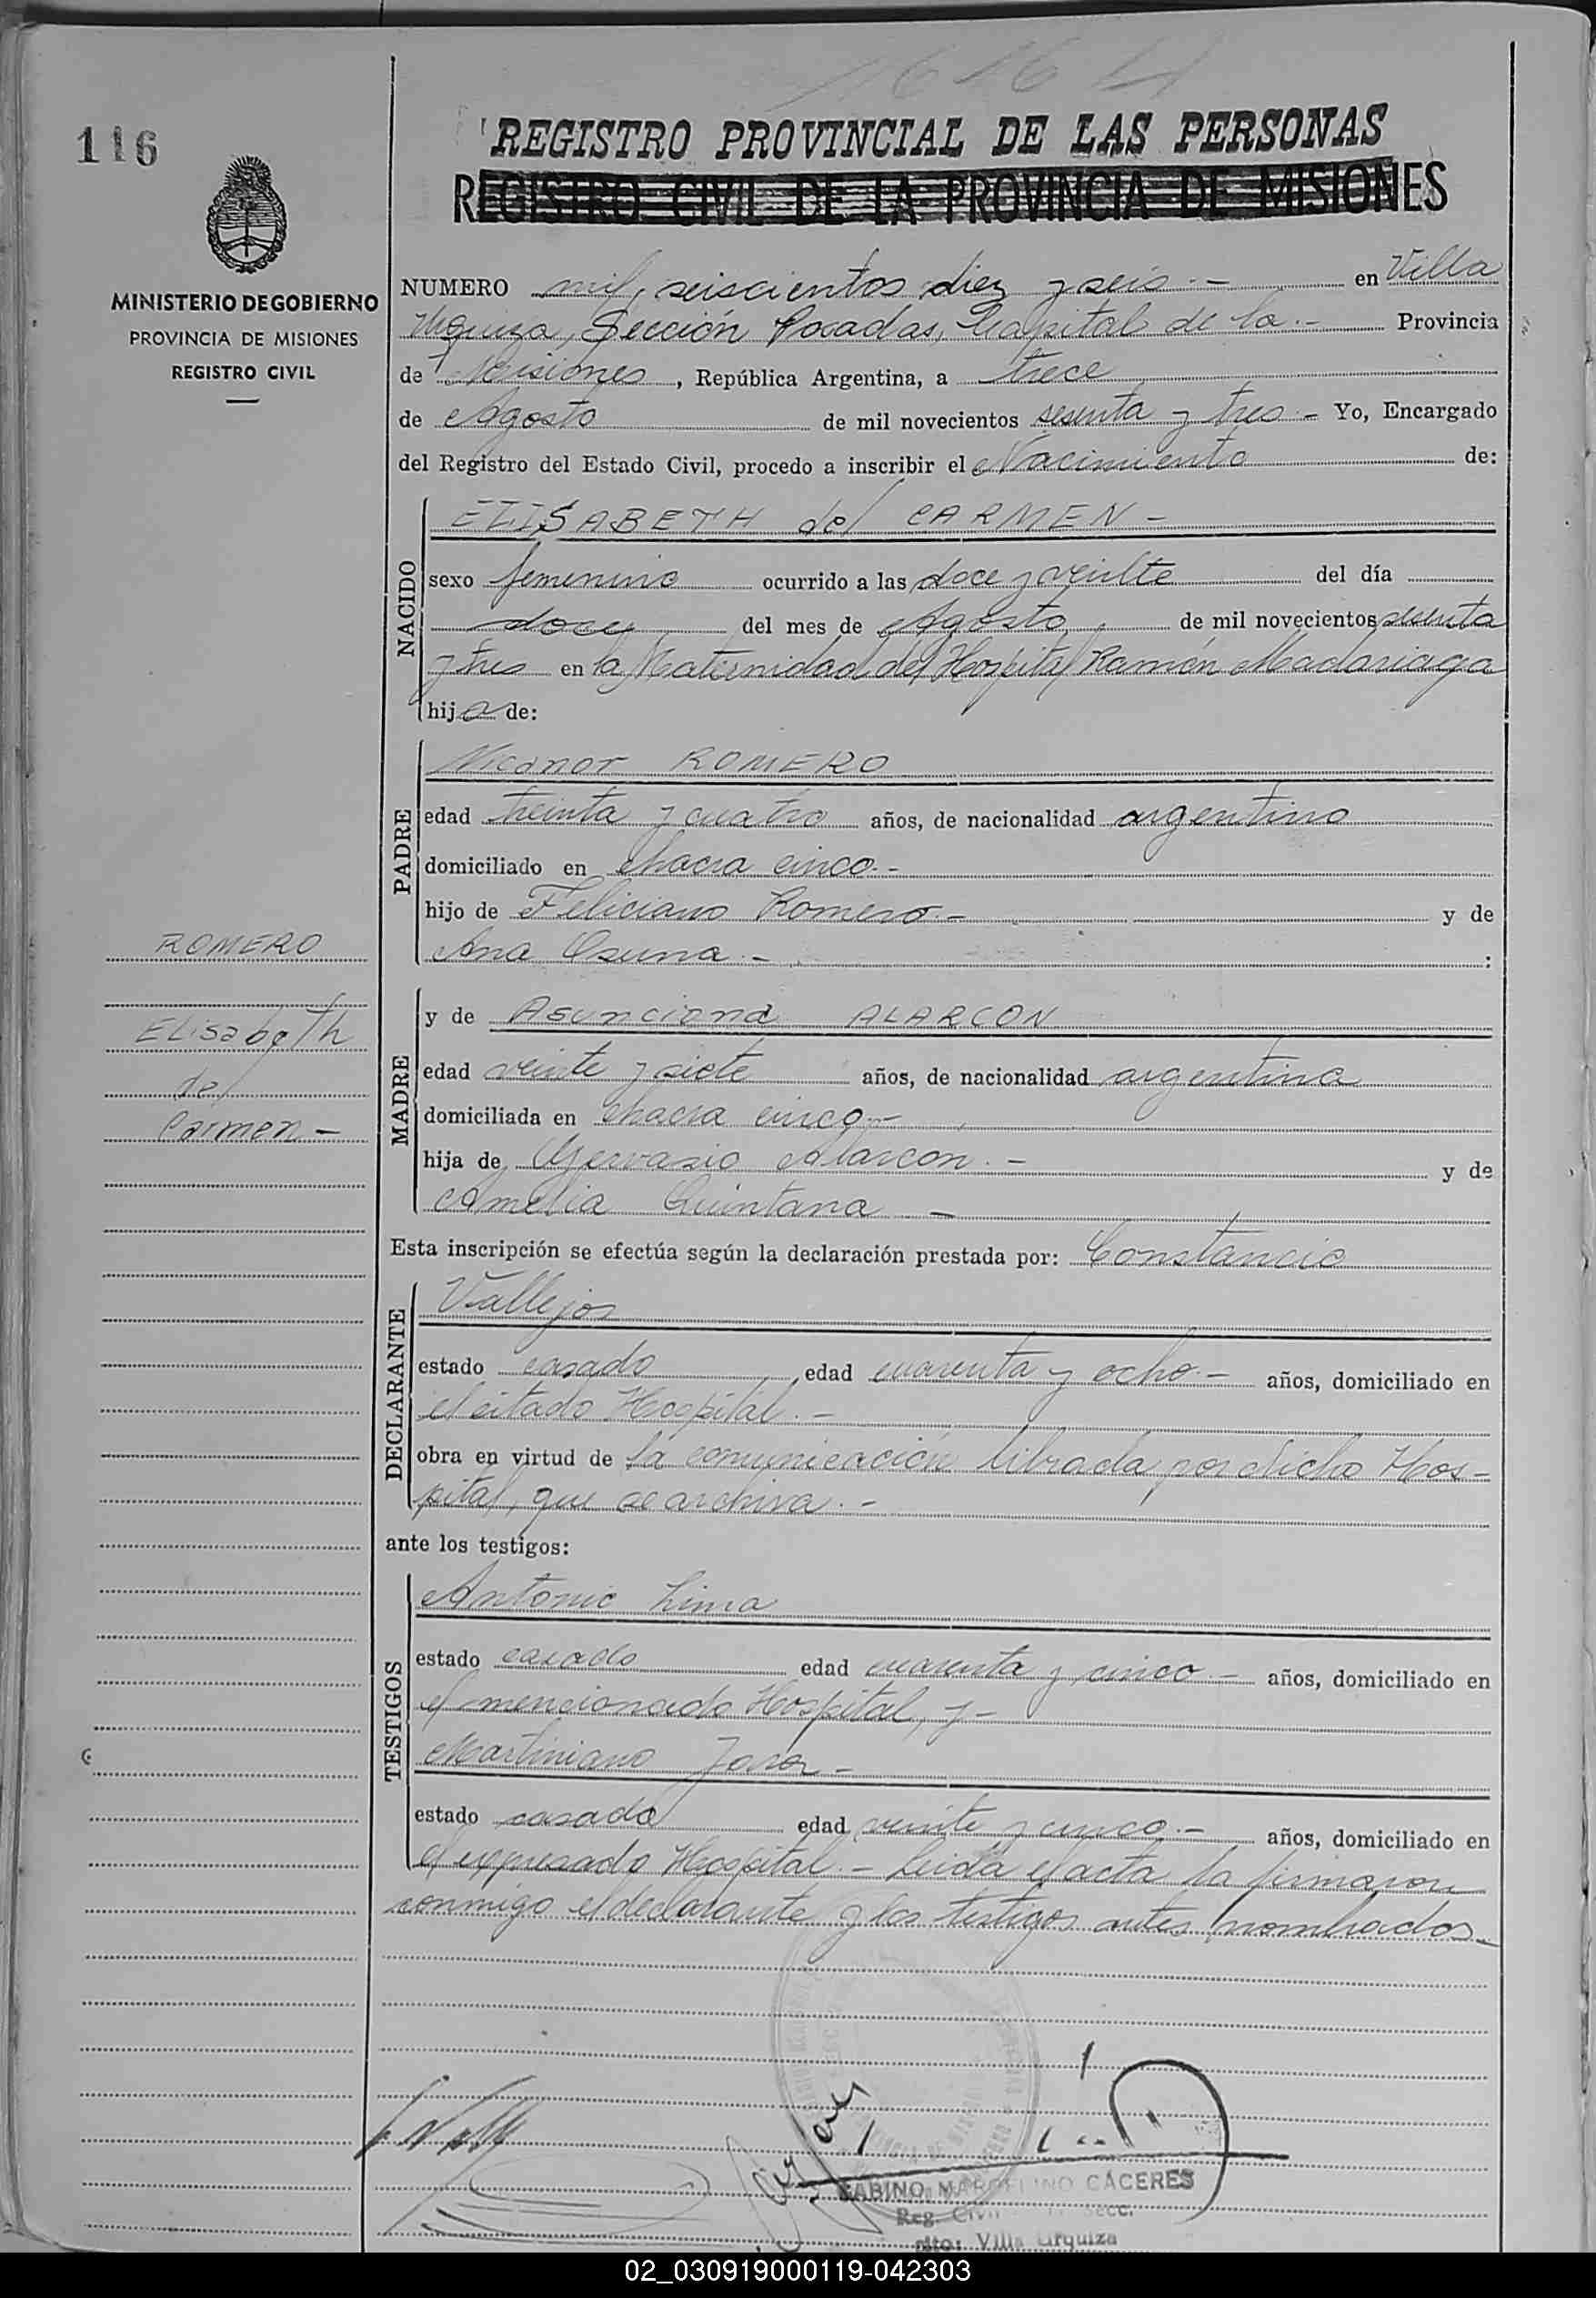 116
REGISTRO PROVINCIAL DE LAS PERSONAS
REGISTRO CIVIL DE LA PROVINCIA DE MISIONES
MINISTERIO DE GOBIERNO
PROVINCIA DE MISIONES
REGISTRO CIVIL
NUMERO mil, seiscientos diez y seis.- en Villa
Urquiza, Sección Posadas, Capital de la.- Provincia
de Misiones, República Argentina, a trece
de Agosto de mil novecientos sesenta y tres.- Yo, Encargado
del Registro del Estado Civil, procedo a inscribir el Nacimiento de:
NACIDO
ELISABETH del CARMEN-
sexo femenino ocurrido a las doce y veinte del día
doce del mes de Agosto de mil novecientos sesenta
y tres en la Maternidad del Hospital Ramón Madariaga
hija de:
PADRE
Nicanor ROMERO
edad treinta y cuatro años, de nacionalidad argentino
domiciliado en chacra cinco.-
hijo de Feliciano Romero.- y de
Ana Osuna.- :
ROMERO
Elisabeth
del
Carmen-
MADRE
y de Asunciona ALARCON
edad veinte y siete años, de nacionalidad argentina
domiciliada en chacra cinco.-
hija de Gervasio Alarcon.- y de
Amelia Quintana -
Esta inscripción se efectúa según la declaración prestada por: Constancio
DECLARANTE
Vallejos
estado casado edad cuarenta y ocho.- años, domiciliado en
el citado Hospital.-
obra en virtud de la comunicación librada por dicho Hos-
pital, que se archiva.-
ante los testigos:
TESTIGOS
Antonio Lima
estado casado edad cuarenta y cinco.- años, domiciliado en
el mencionado Hospital, y-
Martiniano
estado casado edad veinte y cinco.- años, domiciliado en
el expresado Hospital.- Leida el acta la firmaron
conmigo el declarante y los testigos antes nombrados.-
GABINO MARCELINO CACERES
Reg. Civil Secc.
Villa Urquiza
02_030919000119-042303